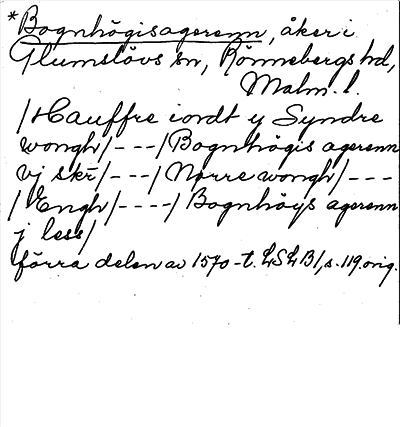 *Bognhögisagerenn, åker i
Glumslövs sn, Rönnebergs hd,
Malm. l.
/Hauffre iordt y Syndre
wongh/---/Bognhögis agerenn
vj skr̄/---/Nørre wongh/---
/Engh/----/Bognhöys agerenn
j less/
förra delen av 1570-t. LSLB1, s. 119 orig.